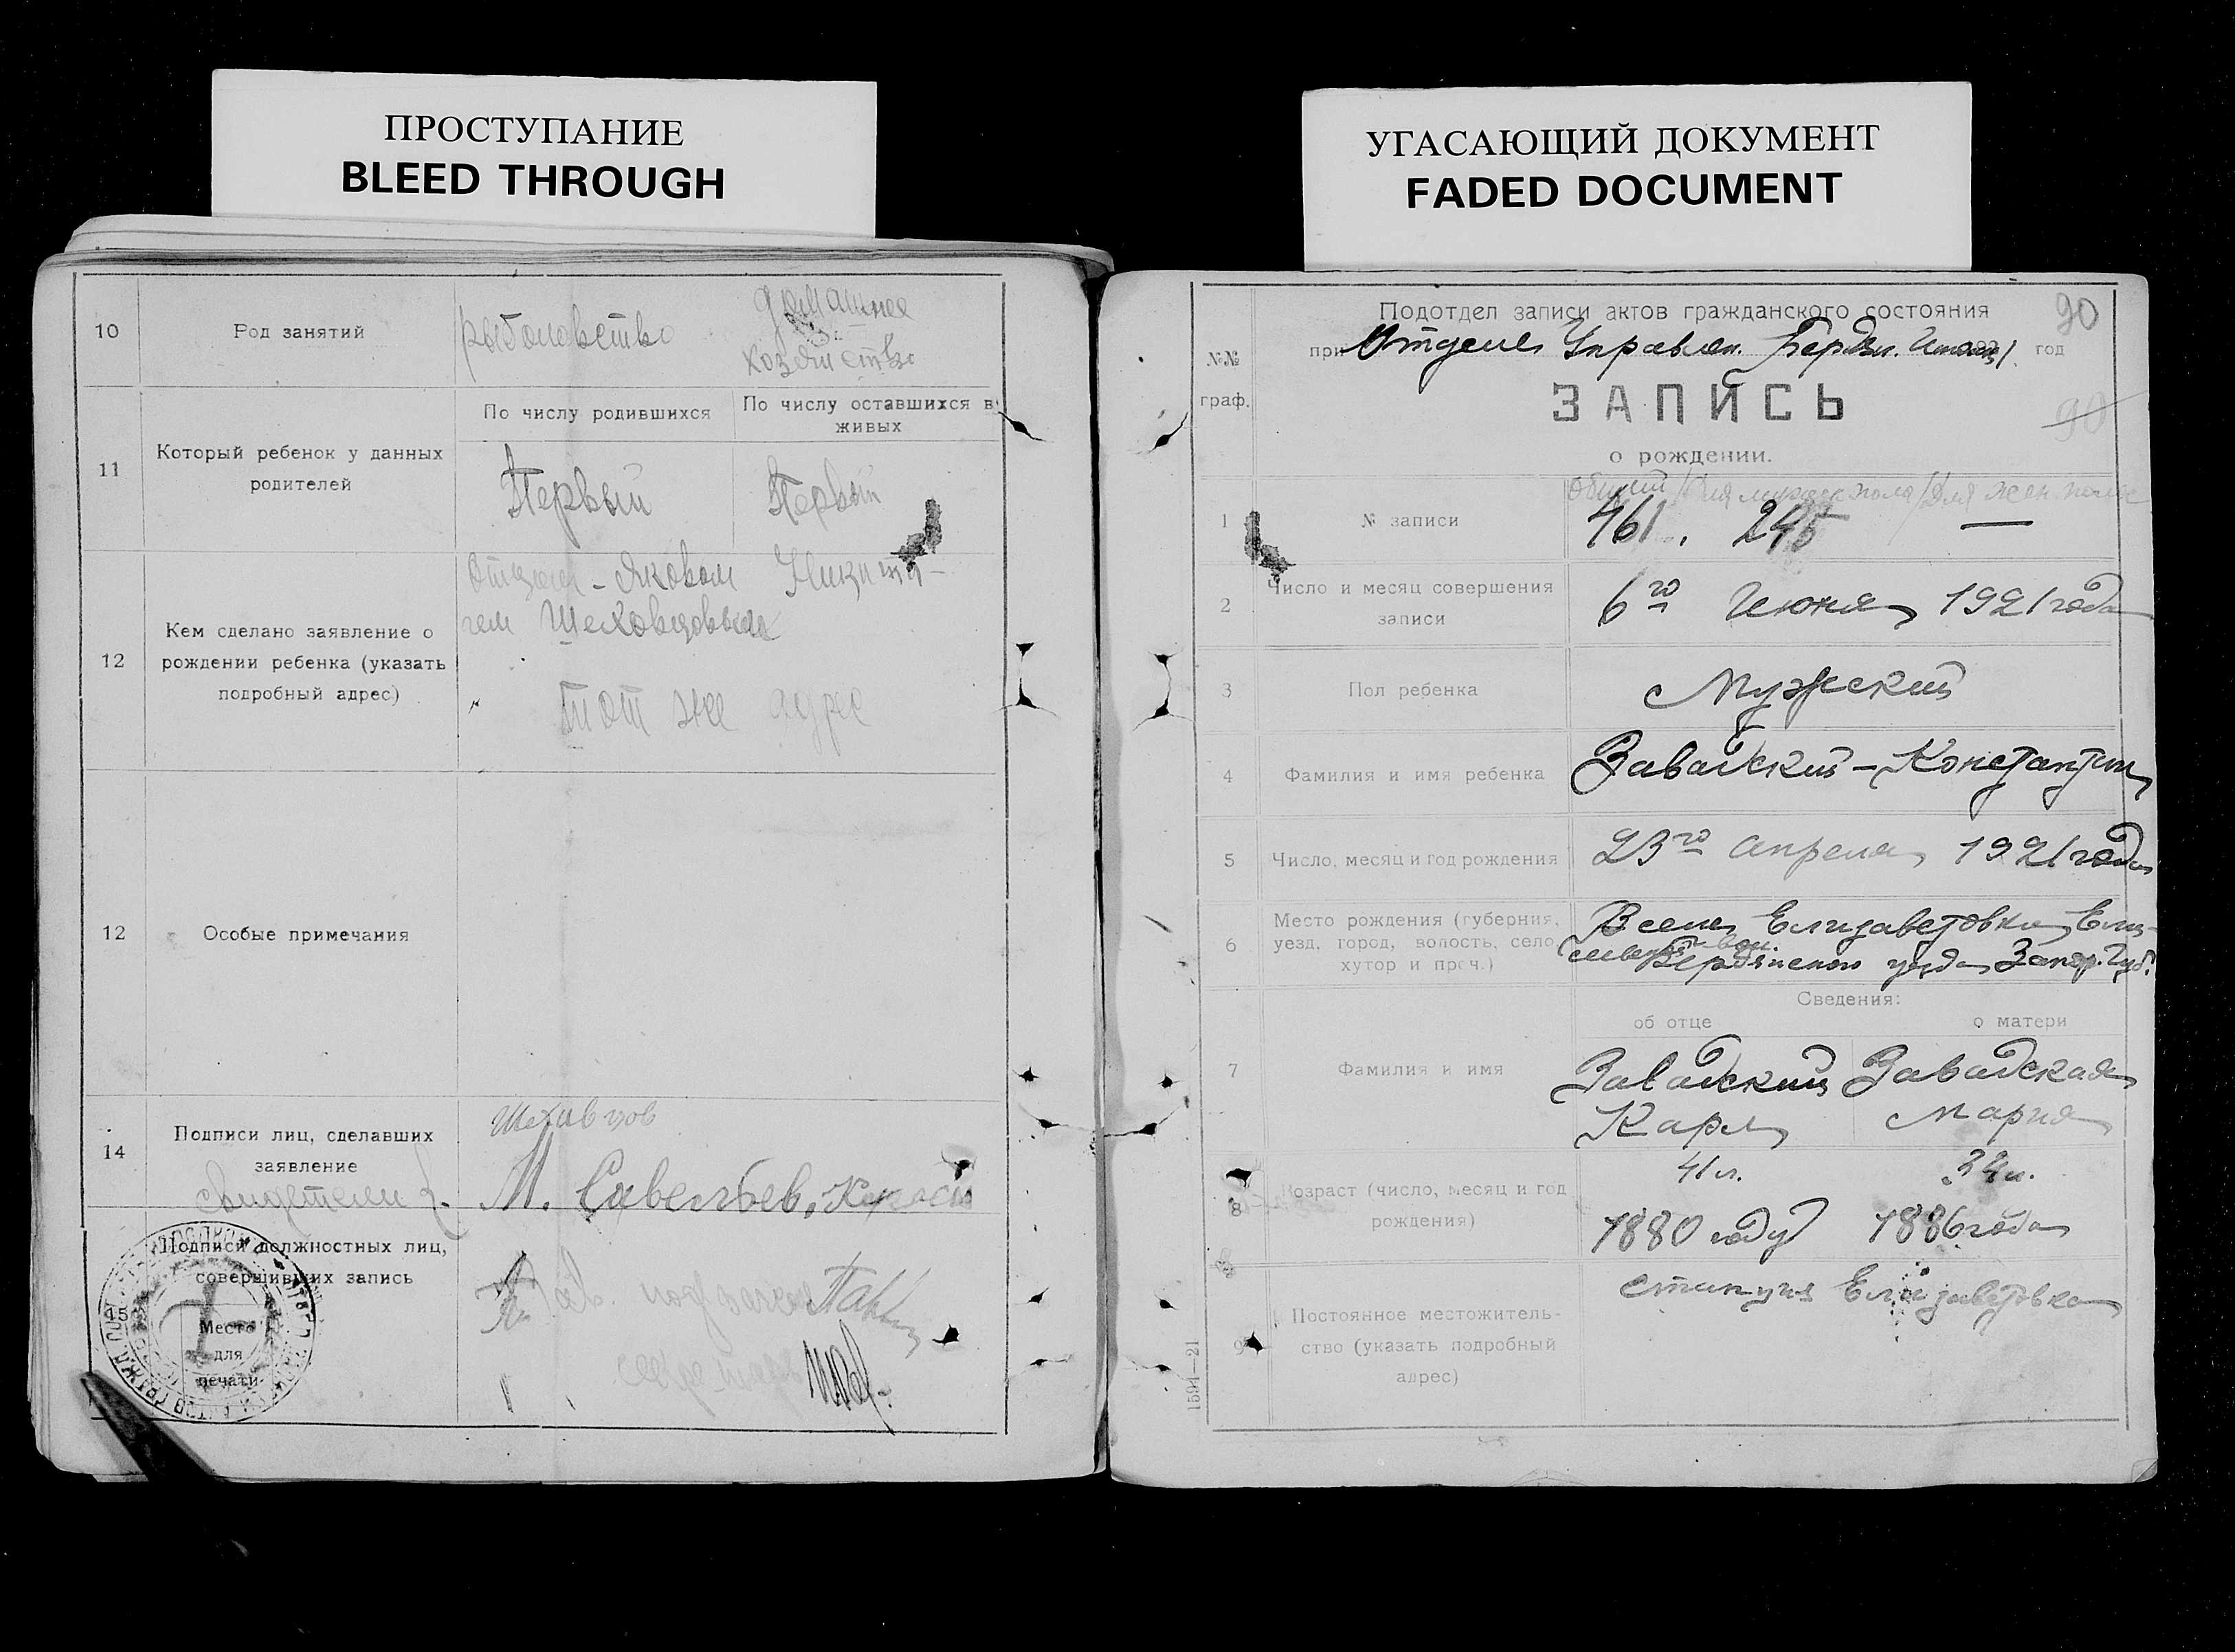 ПРОСТУПАНИЕ
BLEED THROUGH
10
Род занятий
рыболовство
домашнее
хозяйство
11
Который ребенок у данных
родителей
По числу родившихся
По числу оставшихся в
живых
Первый
Первый
12
Кем сделано заявление о
рождении ребенка (указать
подробный адрес)
Отцем - Яковом Никити-
чем Шеховцовым
тот же адрес
12
Особые примечания
14
Подписи лиц, сделавших
заявление
свидетели
Шеховцов
М. Савельев,
15
Подписи должностных лиц,
совершивших запись
Место
для
печати
Зав.
УГАСАЮЩИЙ ДОКУМЕНТ
FADED DOCUMENT
90
Подотдел записи актов гражданского состояния
при Отделе Управлен. год
№№
граф.
ЗАПИСЬ
90
о рождении.
1
№ записи
общий / для мужск пола / для жен. пола
461. 245 —
2
Число и месяц совершения
записи
6го Июня 1921 года
3
Пол ребенка
Мужский
4
Фамилия и имя ребенка
Завадский - Константин
5
Число, месяц и год рождения
23го апреля 1921 года
6
Место рождения (губерния,
уезд, город, волость, село,
хутор и проч.)
В селе Елизаветовка Ели-
вол.
Бердянского уезда Запор. Губ.
Сведения:
об отце
о матери
7
Фамилия и имя
Завадский
Карл
Завадская
Мария
8
Возраст (число, месяц и год
рождения)
41 л.
1880 году
34 л.
1886 года
9
Постоянное местожитель-
ство (указать подробный
адрес)
станция Елизаветовка
1594—21